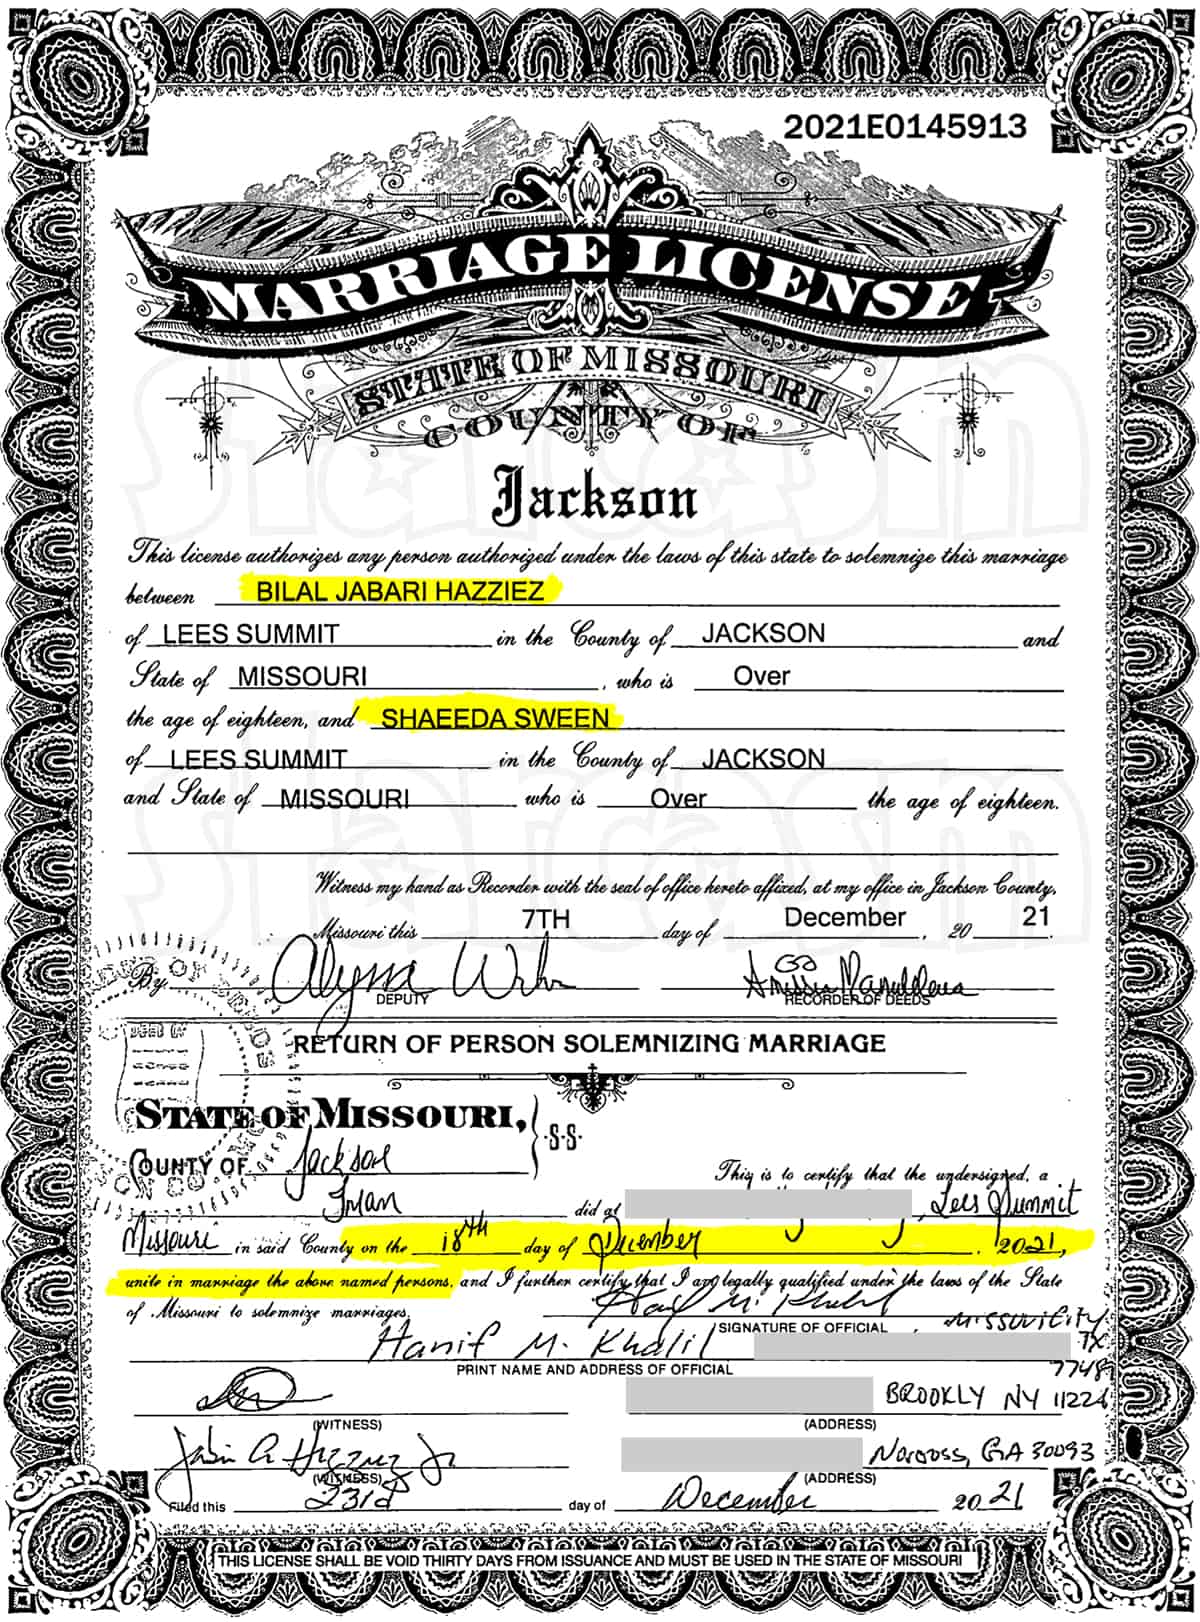 2021E0145913
MARRIAGE LICENSE
STATE OF MISSOURI
COUNTY OF
Jackson
This license authorizes any person authorized under the laws of this state to solemnize this marriage
between BILAL JABARI HAZZIEZ
of LEES SUMMIT in the County of JACKSON and
State of MISSOURI, who is Over
the age of eighteen, and SHAEEDA SWEEN
of LEES SUMMIT in the County of JACKSON
and State of MISSOURI who is Over the age of eighteen.
starcasm
Witness my hand as Recorder with the seal of office hereto affixed, at my office in Jackson County,
Missouri this 7TH day of December, 20 21.
By
DEPUTY RECORDER OF DEEDS
RETURN OF PERSON SOLEMNIZING MARRIAGE
STATE OF MISSOURI, } S.S.
COUNTY OF Jackson
This is to certify that the undersigned, a
Iman did at , Lees Summit
Missouri in said County on the 18th day of December, 2021,
unite in marriage the above named persons, and I further certify that I am legally qualified under the laws of the State
of Missouri to solemnize marriages.
SIGNATURE OF OFFICIAL
Hanif M. Khalil Missouri City TX
PRINT NAME AND ADDRESS OF OFFICIAL
BROOKLY NY 11226
(WITNESS) (ADDRESS)
Norcross, GA 30093
(WITNESS) (ADDRESS)
Filed this 23rd day of December 20 21
THIS LICENSE SHALL BE VOID THIRTY DAYS FROM ISSUANCE AND MUST BE USED IN THE STATE OF MISSOURI